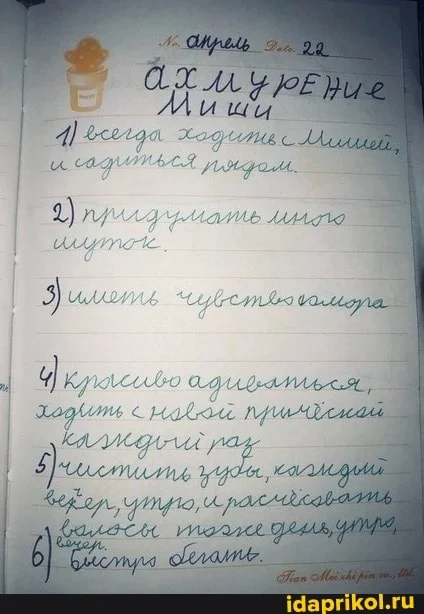 No. апрель Date. 22
АХМУРЕНИЕ
Миши
1) всегда ходить с Мишей,
и садиться рядом.
2) придумать много
шуток.
3) иметь чувство юмора
4) красиво адиваться,
ходить с новой причёской
каждый раз
5) чистить зубы, каждый
вечер, утро, и расчёсовать
волосы тоже день, утро,
вечер.
6) быстро бегать.
Tian Mei zhi pin co., ltd.
idaprikol.ru